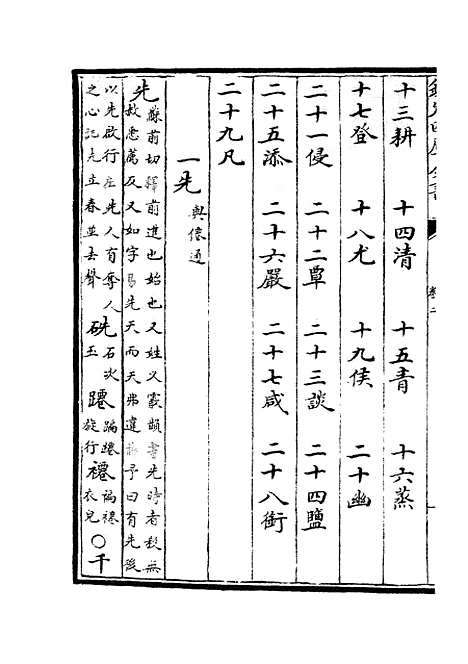 欽定四庫全書
卷二
十三耕　十四清　十五青　十六蒸
十七登　十八尤　十九侯　二十幽
二十一侵　二十二覃　二十三談　二十四鹽
二十五添　二十六嚴　二十七咸　二十八銜
二十九凡
一先與僊通
先蘇前切釋前進也始也又姓又霰韻書先時者殺無
赦悉薦反又如字易先天而天弗違詩予曰有先後
以先啟行左先人有奪人
之心記先立春並去聲
硟石次
玉
躚蹁躚
旋行
褼褊褼
衣皃
○千